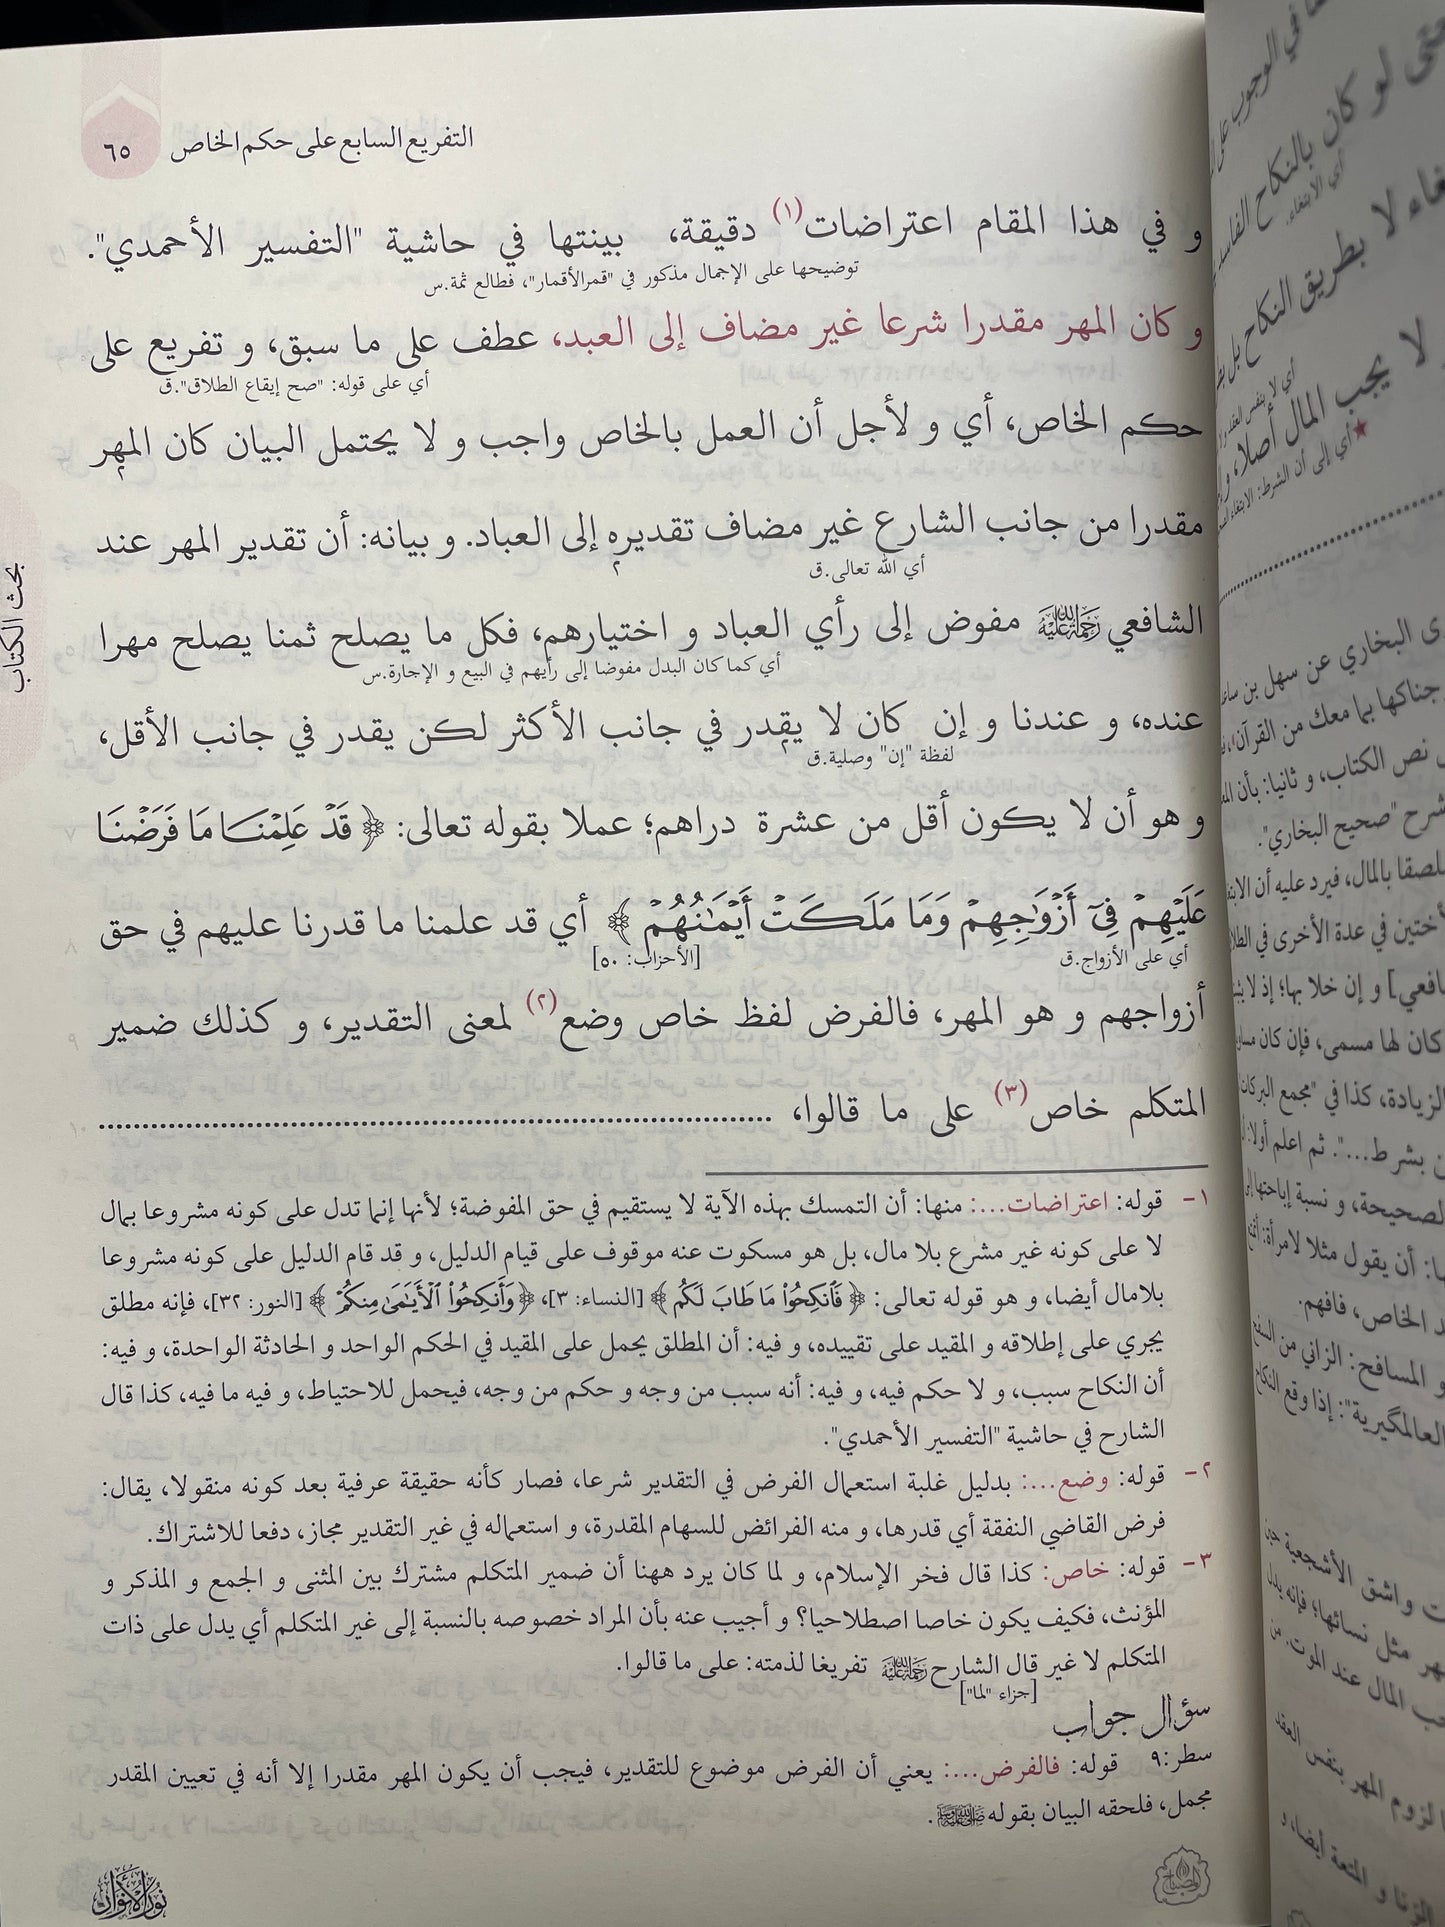 التفريع السابع على حكم الخاص ٦٥
و في هذا المقام اعتراضات(١) دقيقة، بينتها في حاشية "التفسير الأحمدي".
توضيحها على الإجمال مذكور في "قمرالأقمار"، فطالع ثمة.س
و كان المهر مقدرا شرعا غير مضاف إلى العبد، عطف على ما سبق، و تفريع على
أي على قوله: "صح إيقاع الطلاق".ق
حكم الخاص، أي و لأجل أن العمل بالخاص واجب و لا يحتمل البيان كان المهر
مقدرا من جانب الشارع غير مضاف تقديره إلى العباد. و بيانه: أن تقدير المهر عند
أي الله تعالى.ق
الشافعي رحمة الله عليه مفوض إلى رأي العباد و اختيارهم، فكل ما يصلح ثمنا يصلح مهرا
أي كما كان البدل مفوضا إلى رأيهم في البيع و الإجارة.س
عنده، و عندنا و إن كان لا يقدر في جانب الأكثر لكن يقدر في جانب الأقل،
لفظة "إن" وصلية.ق
و هو أن لا يكون أقل من عشرة دراهم؛ عملا بقوله تعالى: ﴿ قَدْ عَلِمْنَا مَا فَرَضْنَا
عَلَيْهِمْ فِيٓ أَزْوَٰجِهِمْ وَمَا مَلَكَتْ أَيْمَٰنُهُمْ ﴾ أي قد علمنا ما قدرنا عليهم في حق
أي على الأزواج.ق [الأحزاب: ٥٠]
أزواجهم و هو المهر، فالفرض لفظ خاص وضع(٢) لمعنى التقدير، و كذلك ضمير
المتكلم خاص(٣) على ما قالوا، ........................................
١- قوله: اعتراضات...: منها: أن التمسك بهذه الآية لا يستقيم في حق المفوضة؛ لأنها إنما تدل على كونه مشروعا بمال
لا على كونه غير مشرع بلا مال، بل هو مسكوت عنه موقوف على قيام الدليل، و قد قام الدليل على كونه مشروعا
بلامال أيضا، و هو قوله تعالى: ﴿ فَٱنكِحُوا۟ مَا طَابَ لَكُم ﴾ [النساء: ٣]، ﴿ وَأَنكِحُوا۟ ٱلْأَيَٰمَىٰ مِنكُمْ ﴾ [النور: ٣٢]، فإنه مطلق
يجري على إطلاقه و المقيد على تقييده، و فيه: أن المطلق يحمل على المقيد في الحكم الواحد و الحادثة الواحدة، و فيه:
أن النكاح سبب، و لا حكم فيه، و فيه: أنه سبب من وجه و حكم من وجه، فيحمل للاحتياط، و فيه ما فيه، كذا قال
الشارح في حاشية "التفسير الأحمدي".
٢- قوله: وضع...: بدليل غلبة استعمال الفرض في التقدير شرعا، فصار كأنه حقيقة عرفية بعد كونه منقولا، يقال:
فرض القاضي النفقة أي قدرها، و منه الفرائض للسهام المقدرة، و استعماله في غير التقدير مجاز، دفعا للاشتراك.
٣- قوله: خاص: كذا قال فخر الإسلام، و لما كان يرد ههنا أن ضمير المتكلم مشترك بين المثنى و الجمع و المذكر و
المؤنث، فكيف يكون خاصا اصطلاحيا؟ و أجيب عنه بأن المراد خصوصه بالنسبة إلى غير المتكلم أي يدل على ذات
المتكلم لا غير قال الشارح رحمة الله عليه تفريغا لذمته: على ما قالوا.
[جزاء "لما"]
سؤال جواب
سطر:٩ قوله: فالفرض...: يعني أن الفرض موضوع للتقدير، فيجب أن يكون المهر مقدرا إلا أنه في تعيين المقدر
مجمل، فلحقه البيان بقوله ﷺ.
بحث الكتاب
نور الأنوار
المصباح